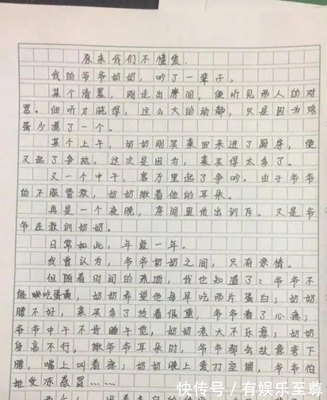 原来我们不懂爱
我的爷爷奶奶，吵了一辈子。
某个清晨，刚走出房间，便听见两人的对
骂。细听才晓得，这么大的动静，只是因为鸡
蛋今煮了一个。
某个上午，奶奶刚买菜回来进了厨房，便
又起了争执，这次是因为，菜买得太多了。
又一个中午，客厅里起了争吵。由于爷爷
的不服管教，奶奶揪着他的耳朵。
再是一个夜晚，房间里传出训斥。又是爷
爷在教训奶奶。
日常如此，年复一年。
我曾认为，爷爷奶奶之间，只有亲情。
但随着时间的流逝，我也知道了：爷爷不
能吃蛋黄，奶奶希望他每早吃两片蛋白；奶奶
腰不好，菜买多了拎着很重，爷爷看了心疼；
爷爷中午不肯睡午觉，奶奶老大不乐意；奶奶
身高不行，揪爷爷耳朵时，爷爷都会故意弯下
腰，嘴上叫着疼；奶奶晚上爱打空调，爷爷怕
她受冻感冒……
快传号/有娱乐至尊